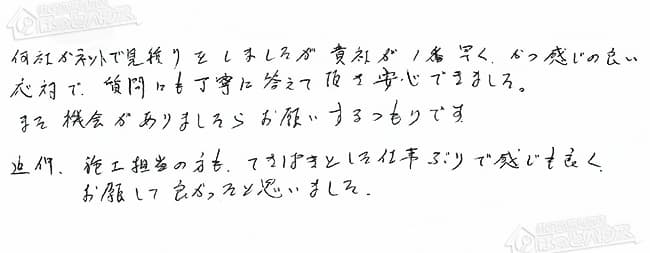 何社かネットで見積りをしましたが貴社が1番早く、かつ感じの良い
応対で、質問にも丁寧に答えて頂き安心できました。
また機会がありましたらお願いするつもりです
追伸、施工担当の方も、てきぱきとした仕事ぶりで感じも良く、
お願いして良かったと思いました。
ほっとハウス
ほっとハウス